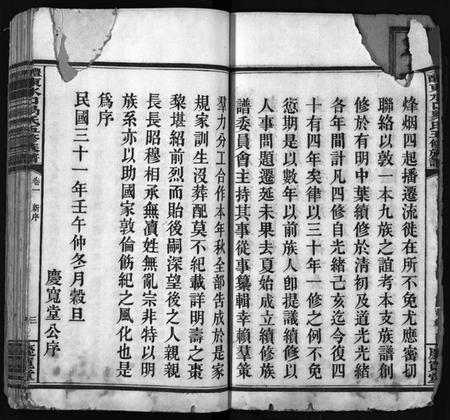 烽烟四起播遷流徙在所不免尤應密切
聯絡以敦一本九族之誼考本支族譜創
修於有明中葉續修於清初及道光光緒
各年間計凡四修自光緒己亥迄今復四
十有四年矣律以三十年一修之例不免
愆期是以數年以前族人卽提議續修以
人事問題遷延未果去夏始成立續修族
譜委員會主持其事從事纂輯幸賴羣策
羣力分工合作本年秋全部告成於是家
規家訓生沒葬配莫不紀載詳明壽之棗
黎堪紹前烈而貽後嗣深望後之人親親
長長昭穆相承無瀆姓無亂宗非特以明
族系亦以助國家敦倫飭紀之風化也是
爲序
民國三十一年壬午仲冬月穀旦
慶寬堂公序
卷一 新序
三
慶寬堂